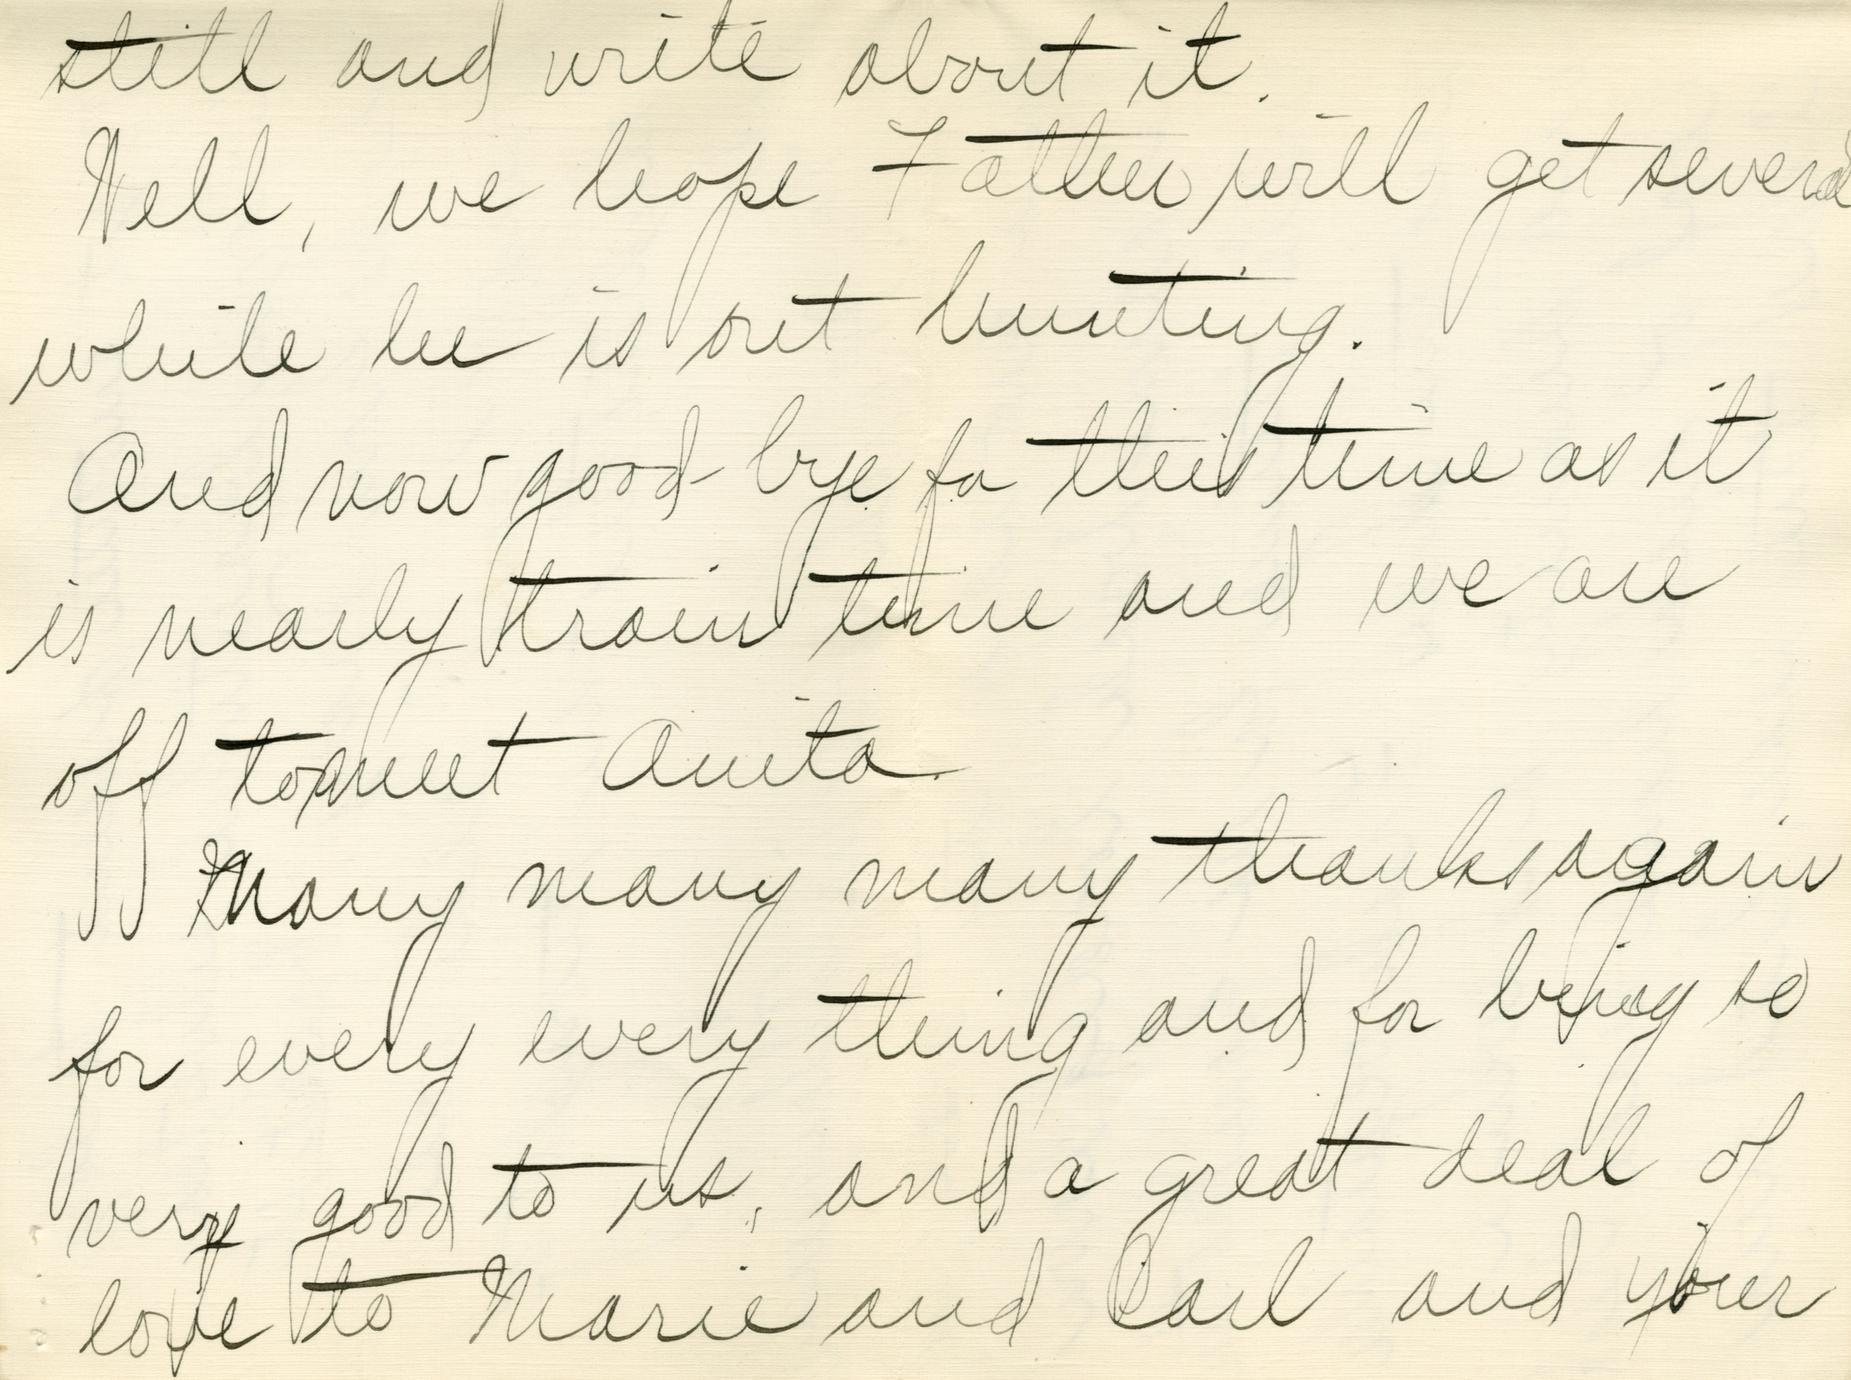 still and write about it.
Well, we hope Father will get several
while he is out hunting.
And now good-bye for this time as it
is nearly train time and we are
off to meet Anita.
Many many many thanks again
for every every thing and for being so
very good to us, and a great deal of
love to Marie and Carl and your